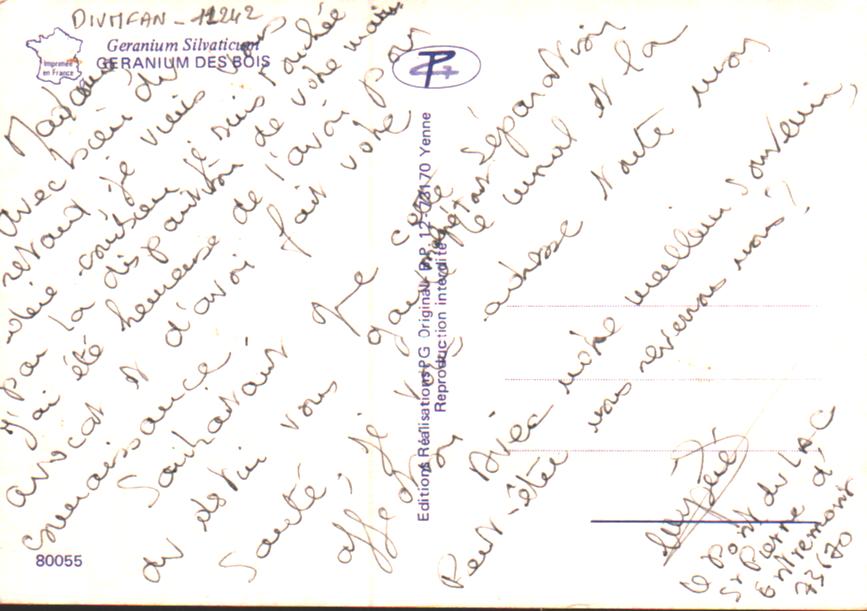 DIVMFAN - 12242
Imprimée
en France
Geranium Silvaticum
GERANIUM DES BOIS
Madame,
Avec bien du
retard je viens vous
dire combien je suis touchée
par la disparition de votre mari
J'ai été heureuse de l'avoir pour
avocat et d'avoir fait votre
connaissance.
Souhaitant que cette séparation
du destin vous
Santé, je vous adresse toute mon
affection
Avec notre meilleur souvenir,
Peut-être nous reverrons nous!
Le Pont du LAC
St Pierre d'
Entremont
73670
Editions Réalisations PG Original - B.P. 12 - 73170 Yenne
Reproduction interdite
80055